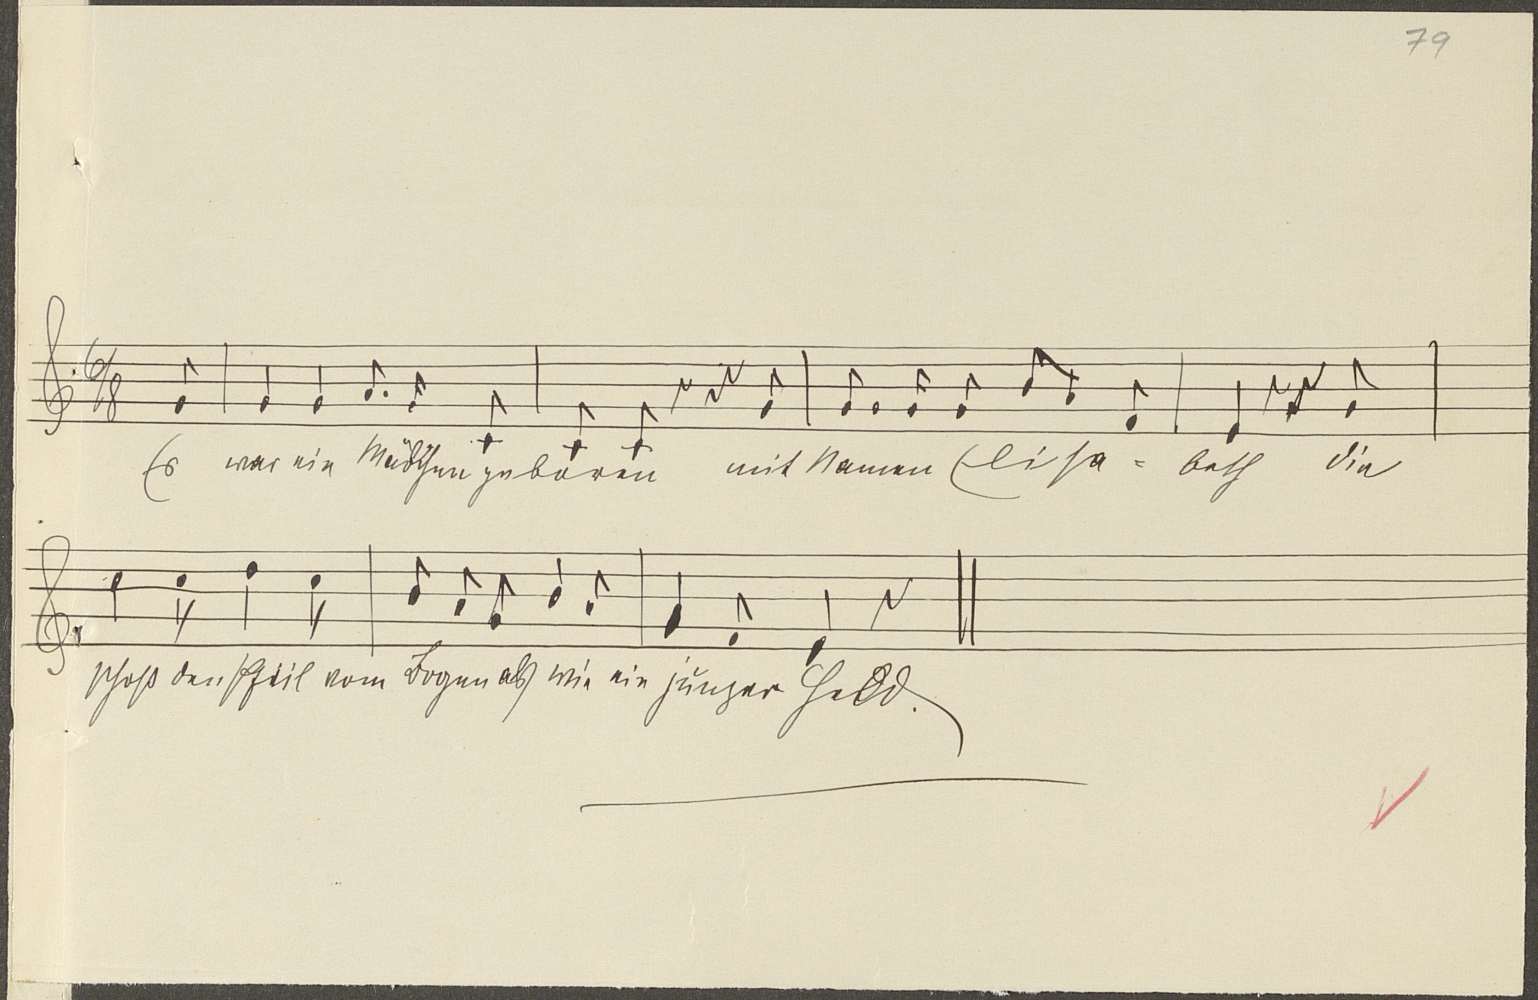 79
6/8
Es war ein Mädchen geboren mit Namen Elisa= beth die
schoß den Pfeil vom Bogen als wie ein junger Held.